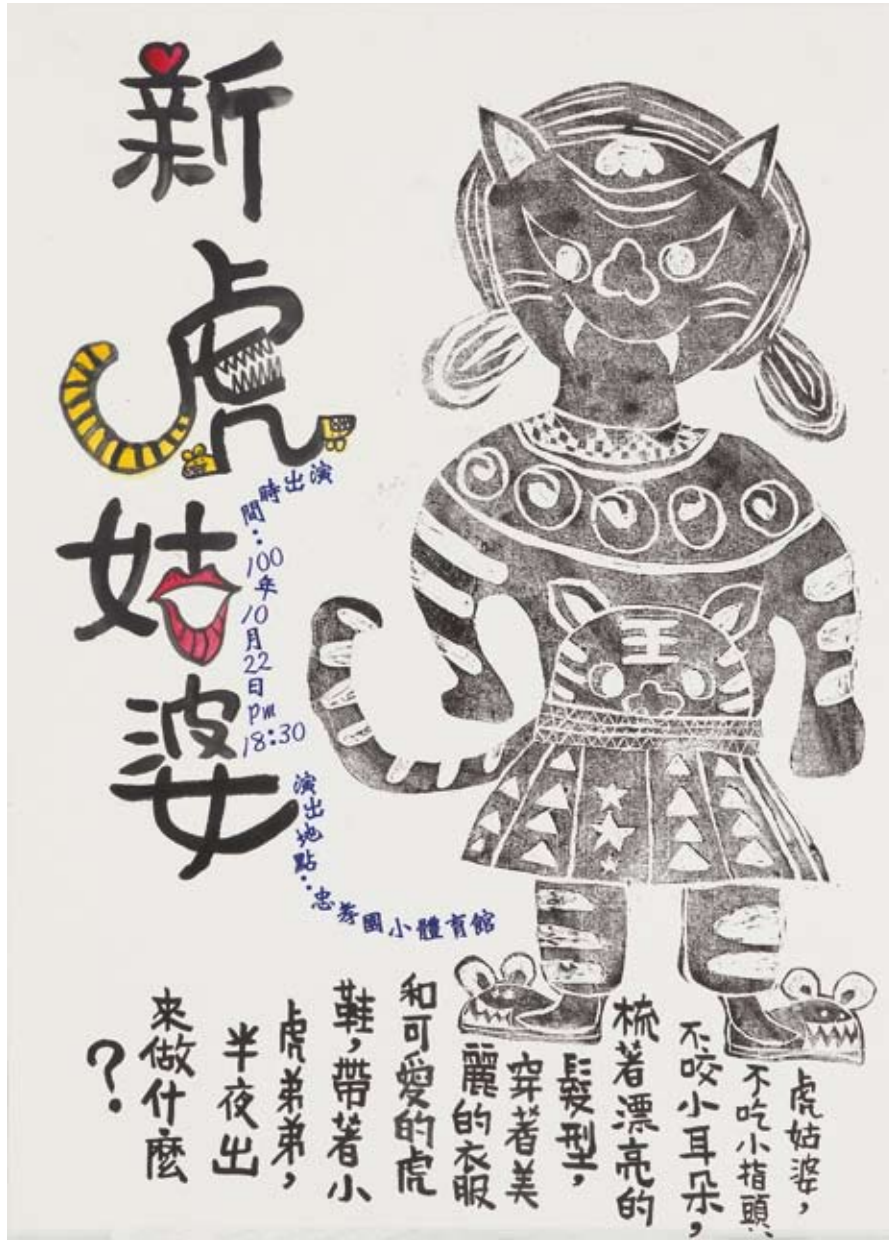 新虎姑婆
演出時間:100年10月22日pm18:30
演出地點:忠孝國小體育館
王
虎姑婆,
不吃小指頭、
不咬小耳朵,
梳著漂亮的
髮型,
穿著美
麗的衣服
和可愛的虎
鞋,帶著小
虎弟弟,
半夜出
來做什麼
?